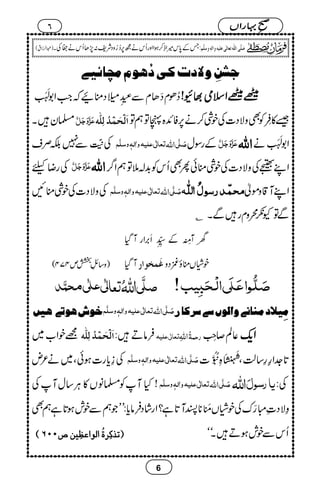 صبح بہاراں
٦
جشنِ ولادت کی دُھوم مچائیے
میٹھے میٹھے اسلامی بھائیو! دُھوم دَھام سے عیدِ میلاد منائیے کہ جب ابُولَہَب
جیسے کافر کو بھی ولادت کی خوشی کرنے پر فائدہ پہنچا تو ہم تو اَلْحَمْدُ لِلّٰہ عَزَّوَجَلَّ مسلمان ہیں۔
ابُولَہَب نے اللّٰہ عَزَّوَجَلَّ کے رسول صلَّی اللہ تعالٰی علیہ واٰلہٖ وسلَّم کی نیّت سے نہیں بلکہ صرف
اپنے بھتیجے کی ولادت کی خوشی منائی پھر بھی اُس کو بدلہ ملا تو ہم اگر اللّٰہ عَزَّوَجَلَّ کی رضا کیلئے
اپنے آقا و مولیٰ محمّد رسولُ اللّٰہ صلَّی اللہ تعالٰی علیہ واٰلہٖ وسلَّم کی ولادت کی خوشی منائیں
گے تو کیونکر محروم رہیں گے۔
گھر آمِنہ کے سیِّدِ اَبرار آ گیا
خوشیاں مناؤ غمزدو غمخوار آ گیا (وسائلِ بخشش ص۴۷۴)
صَلُّوا عَلَی الْحَبِیْب! صلَّی اللّٰہُ تعالٰی علٰی محمَّد
میلاد منانے والوں سے سرکار صلَّی اللہ تعالٰی علیہ واٰلہٖ وسلَّم خوش ہوتے ہیں
ایک عالم صاحِب رحمۃُ اللہ تعالٰی علیہ فرماتے ہیں: اَلْحَمْدُ لِلّٰہ مجھے خواب میں
تاجدارِ رسالت، شَہَنشاہِ نُبُوَّت صلَّی اللہ تعالٰی علیہ واٰلہٖ وسلَّم کی زیارت ہوئی، میں نے عرض
کی: یا رسولَ اللّٰہ صلَّی اللہ تعالٰی علیہ واٰلہٖ وسلَّم! کیا آپ کو مسلمانوں کا ہر سال آپ کی
ولادتِ مبارَک کی خوشیاں منانا پسند آتا ہے؟ ارشاد فرمایا: ”جو ہم سے خوش ہوتا ہے ہم بھی
اُس سے خوش ہوتے ہیں۔“ (تذکرۃُ الواعظین ص۶۰۰)
6